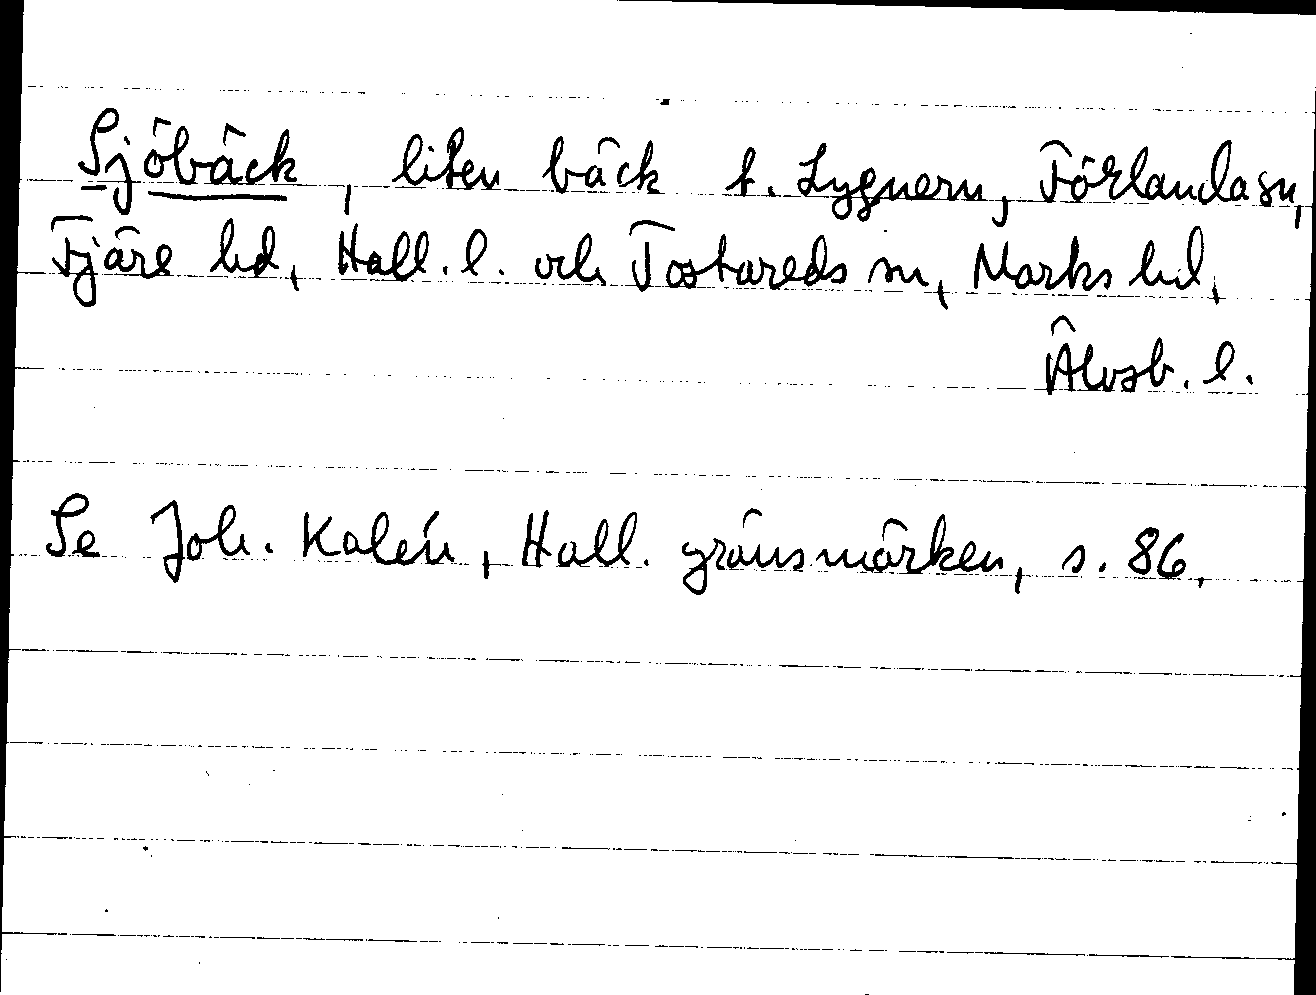 Sjöbäck, liten bäck t. Lygnern, Förlanda sn,
Fjäre hd, Hall. l. och Tostareds sn, Marks hd,
Älvsb. l.
Se Joh. Kalén, Hall. gränsmärken, s. 86.